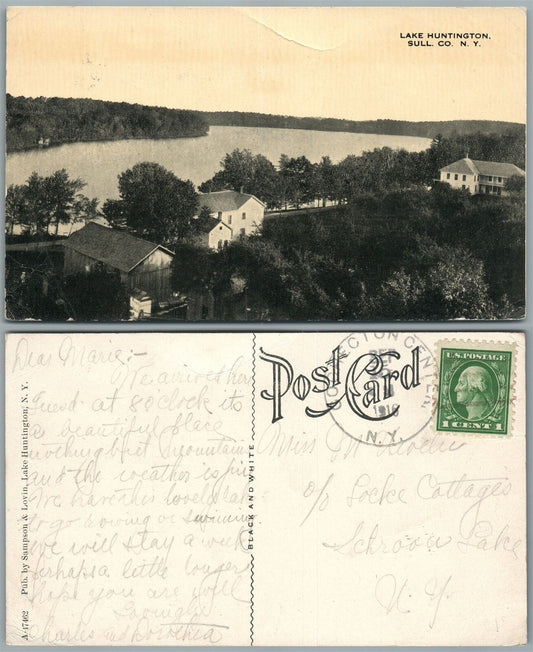 LAKE HUNTINGTON.
SULL. CO. N. Y.
Dear Marie:-
We arrived here
Tuesd- at 8 o'clock its
a beautiful place
nothing but mountains
and the weather is fine
We have this lovely lake
to go rowing or swimming
we will stay a week
perhaps a little longer
Hope you are well
Lovingly
Charles and Dorothea
A-47462 Pub. by Sampson & Lovin, Lake Huntington, N. Y.
BLACK AND WHITE
Post Card
CENTER
N.Y.
U.S. POSTAGE
1 CENT 1
Miss M.
c/o Locke Cottages
Schroon Lake
N. Y.